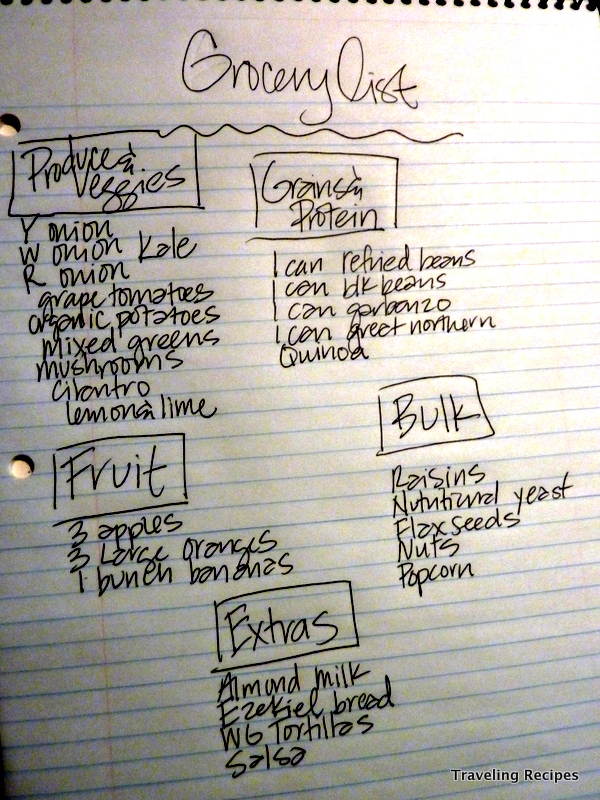 Grocery list
Produce &
Veggies
Y onion
W onion Kale
R onion
grape tomatoes
organic potatoes
mixed greens
mushrooms
Cilantro
lemon & lime
Grains &
Protein
1 can refried beans
1 can blk beans
1 can garbanzo
1 can great northern
Quinoa
Bulk
Raisins
Nutritional yeast
Flax seeds
Nuts
Popcorn
Fruit
3 apples
3 Large oranges
1 bunch bananas
Extras
Almond milk
Ezekiel bread
WG Tortillas
Salsa
Traveling Recipes